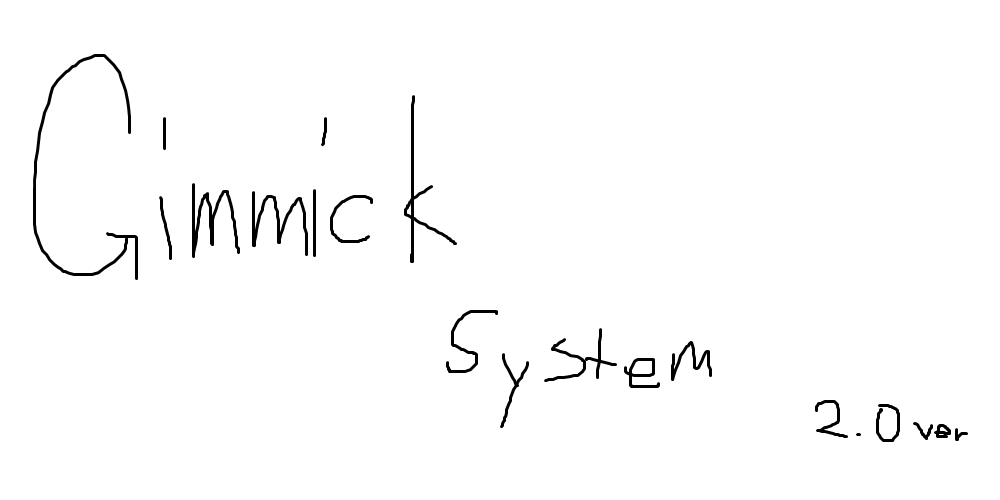 Gimmick
System
2.0 ver